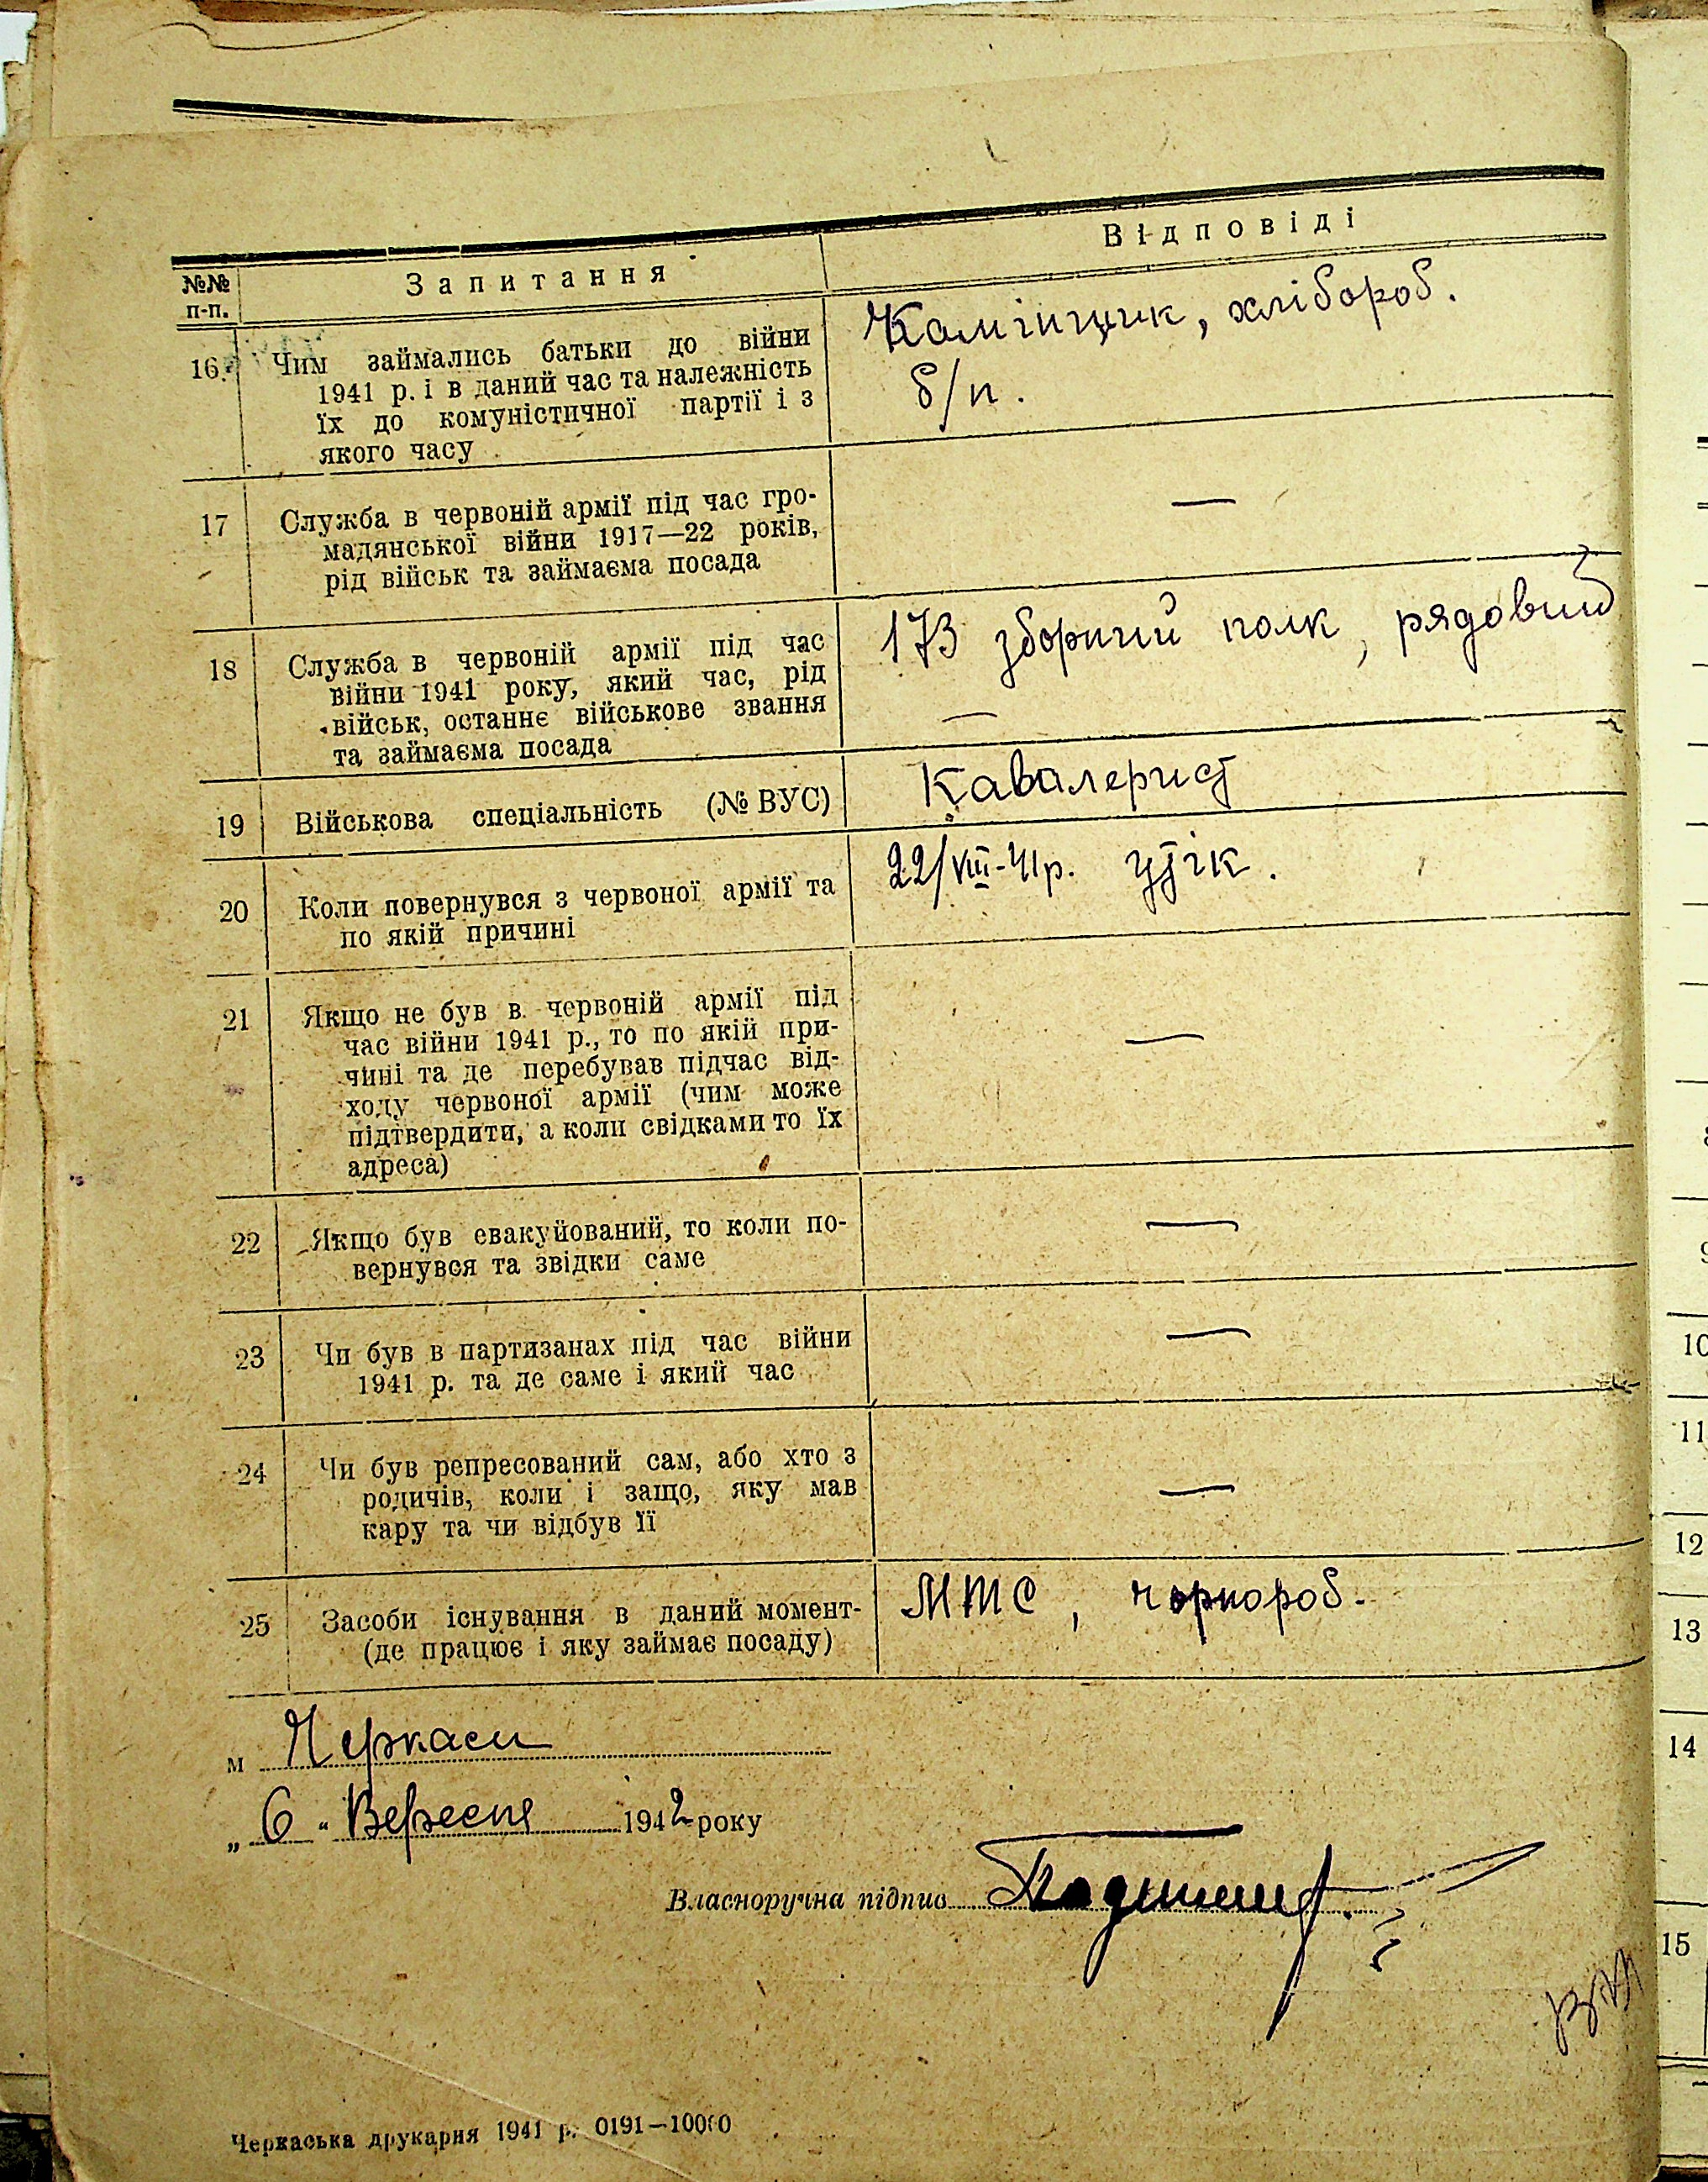 №№ п-п.
Запитання
Відповіді
16. Чим займались батьки до війни
1941 р. і в даний час та належність
їх до комуністичної партії і з
якого часу
хлібороб.
б/п.
17 Служба в червоній армії під час гро-
мадянської війни 1917—22 років,
рід військ та займаєма посада
—
18 Служба в червоній армії під час
війни 1941 року, який час, рід
військ, останнє військове звання
та займаєма посада
173 зборний полк, рядовий
—
19 Військова спеціальність (№ ВУС)
Кавалерист
20 Коли повернувся з червоної армії та
по якій причині
22/VIII-41р. утік.
21 Якщо не був в червоній армії під
час війни 1941 р., то по якій при-
чині та де перебував підчас від-
ходу червоної армії (чим може
підтвердити, а коли свідками то їх
адреса)
—
22 Якщо був евакуйований, то коли по-
вернувся та звідки саме
—
23 Чи був в партизанах під час війни
1941 р. та де саме і який час
—
24 Чи був репресований сам, або хто з
родичів, коли і защо, яку мав
кару та чи відбув її
—
25 Засоби існування в даний момент-
(де працює і яку займає посаду)
МТС, чорнороб.
м Черкаси
„6“ Вересня 1942 року
Власноручна підпис
Черкаська друкарня 1941 р. 0191—10000
10
11
12
13
14
15